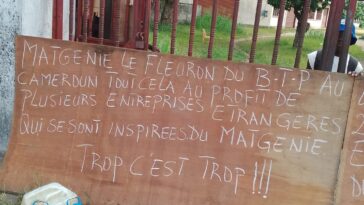 MATGENIE LE FLEURON DU B.T.P AU
CAMEROUN TOUT CELA AU PROFIT DE
PLUSIEURS ENTREPRISES ETRANGERES
QUI SE SONT INSPIREES DU MATGENIE.
TROP C'EST TROP!!!